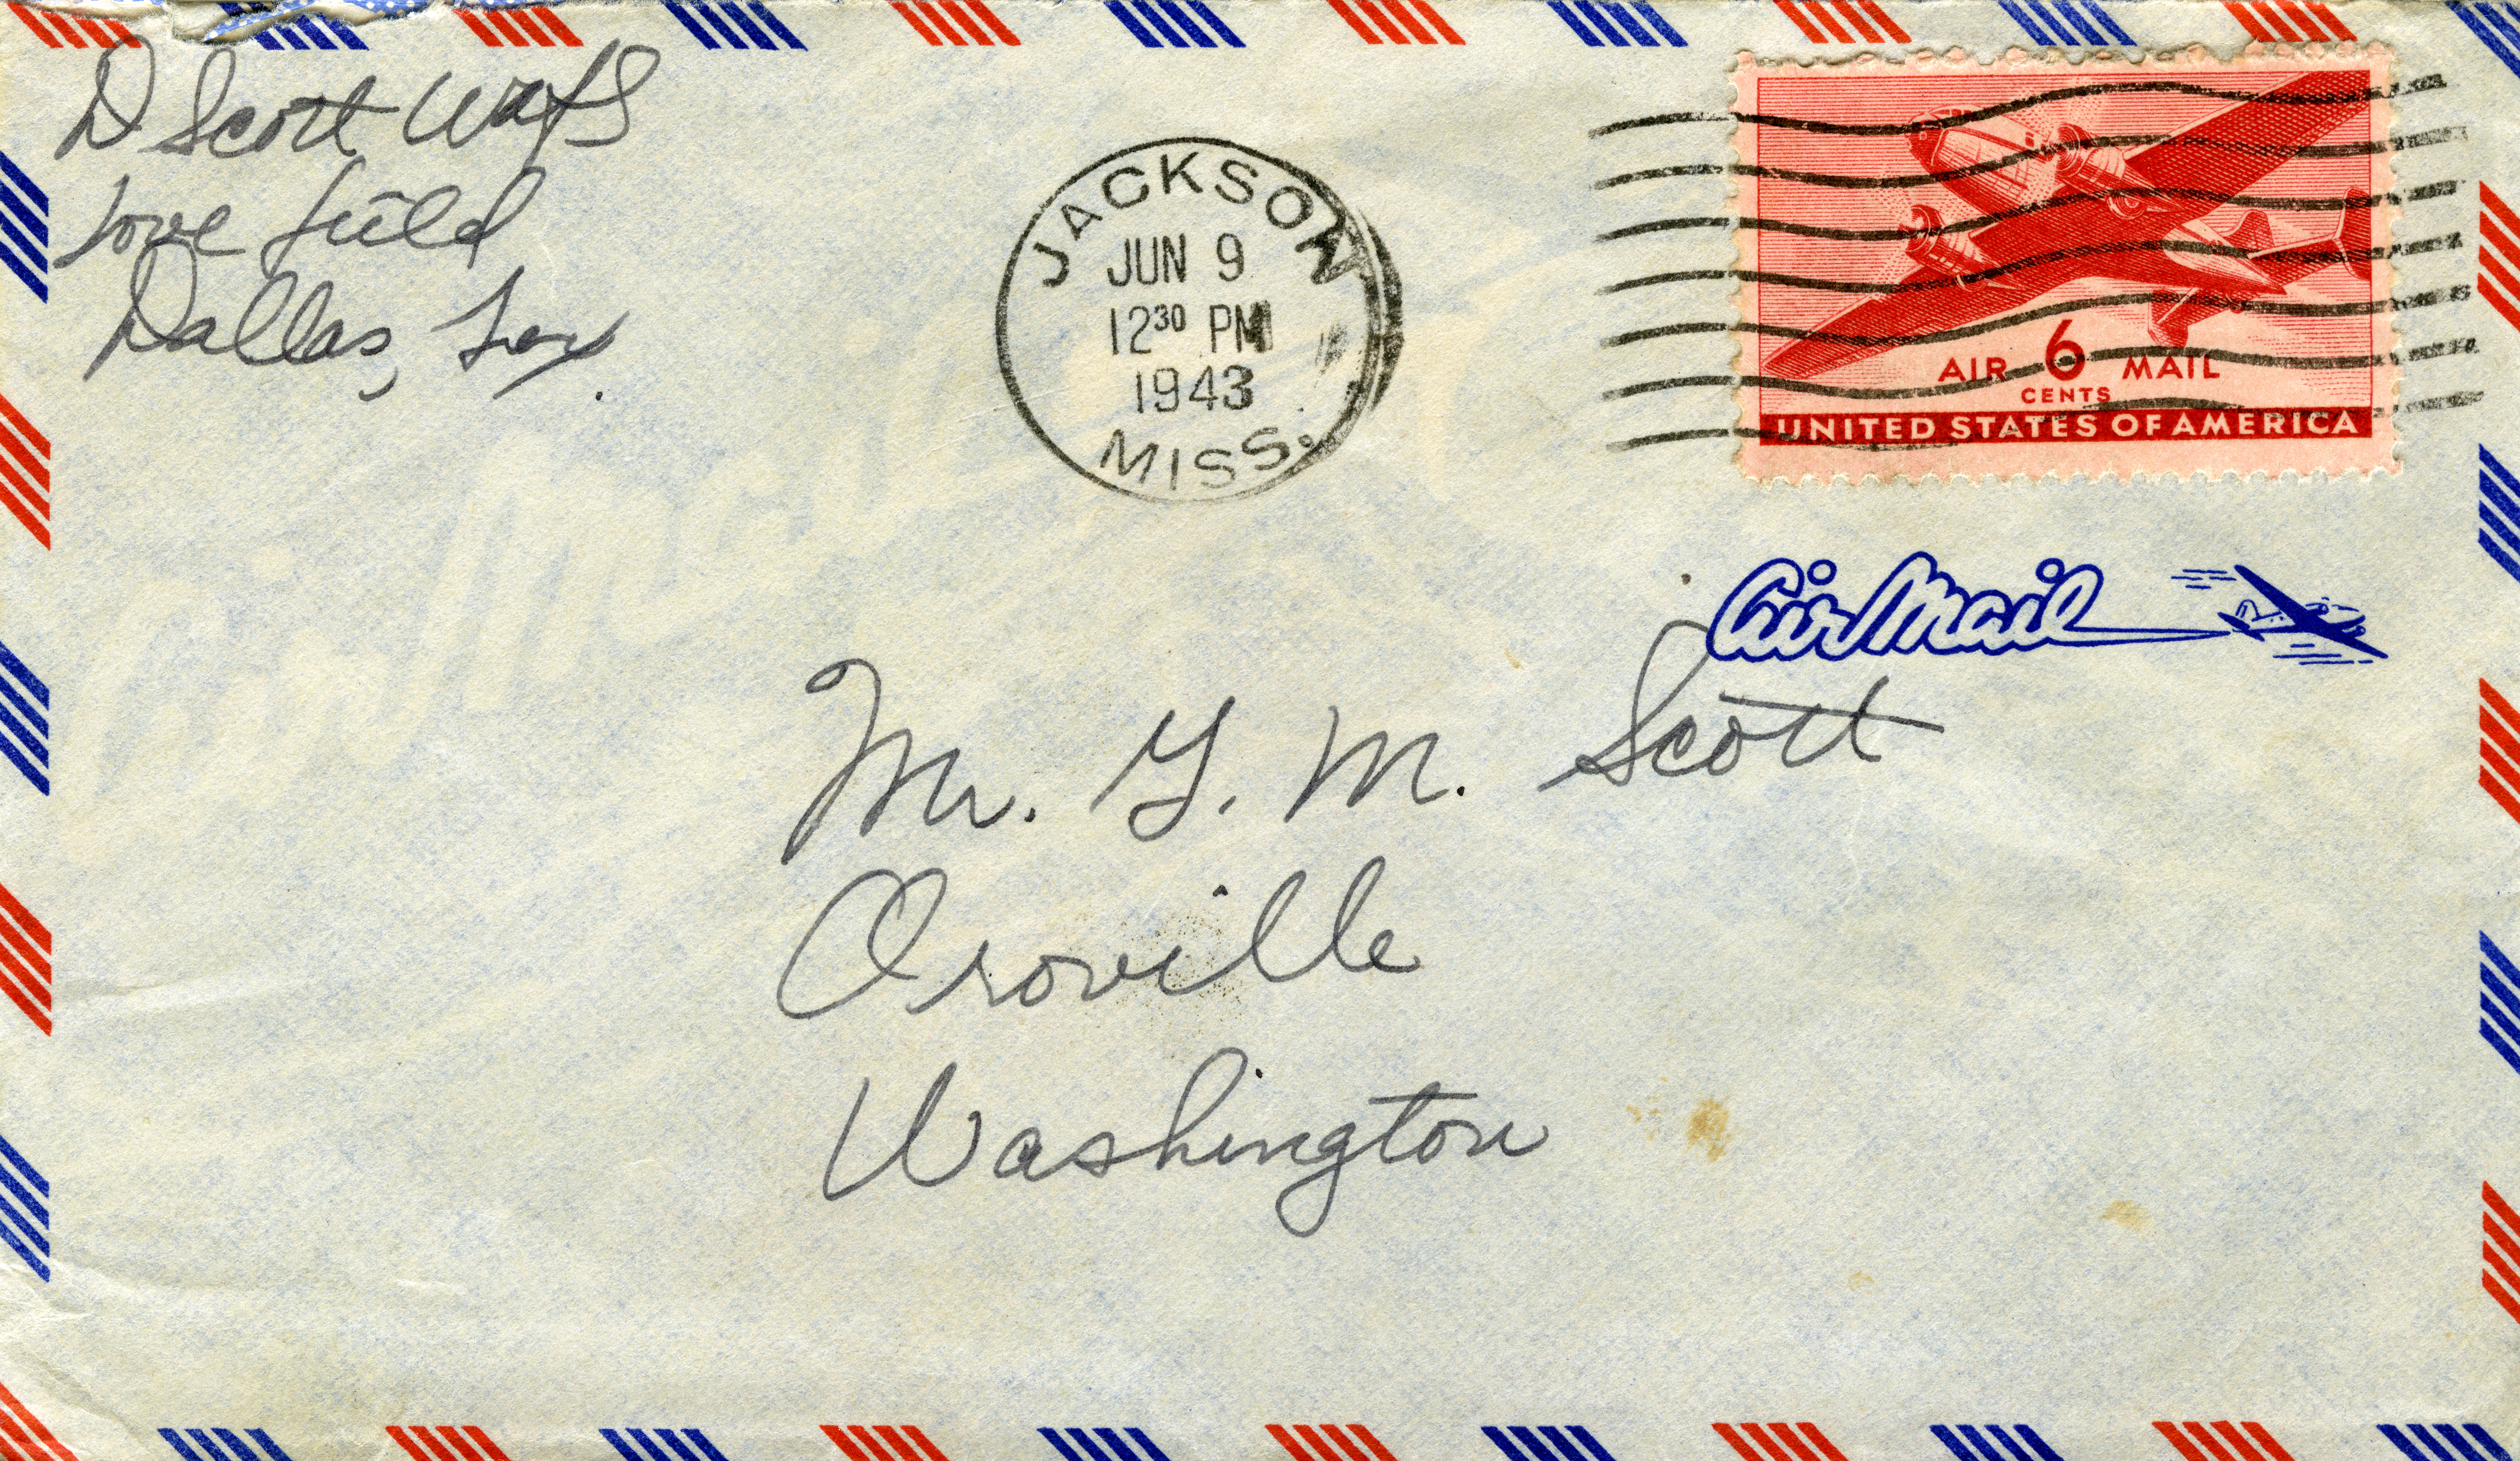 D Scott WAFS
Love Field
Dallas, Tex.
JACKSON
JUN 9
12³⁰ PM
1943
MISS.
AIR 6 MAIL
CENTS
UNITED STATES OF AMERICA
Air Mail
Mr. G. M. Scott
Oroville
Washington